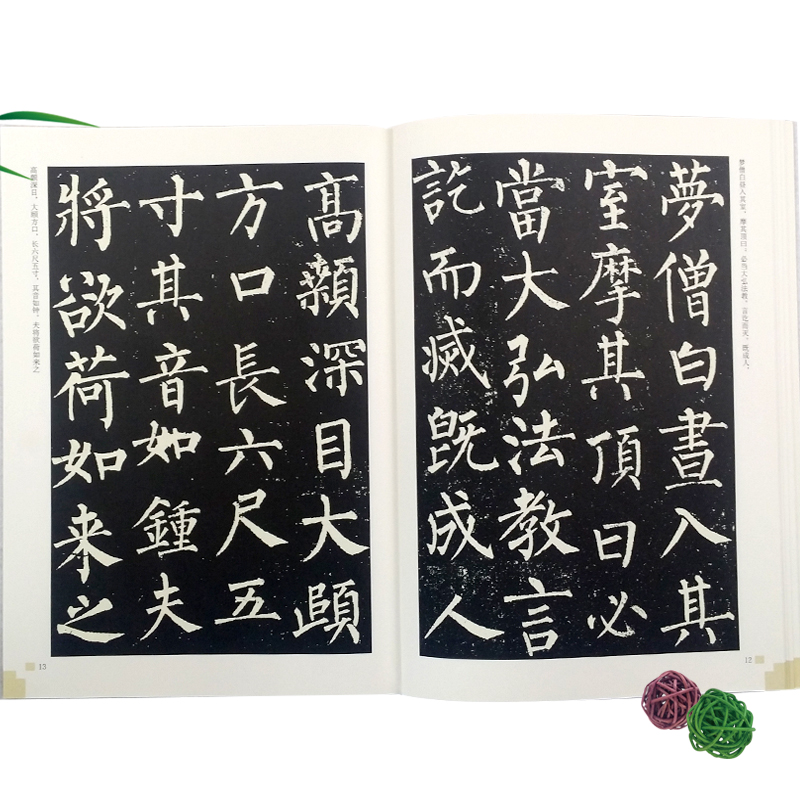 夢僧白晝入其
室摩其頂曰必
當大弘法教言
訖而滅既成人
夢僧白昼入其室，摩其顶曰：必当大弘法教。言讫而灭。既成人，
12
高顙深目大頤
方口長六尺五
寸其音如鍾夫
將欲荷如来之
高颡深目，大颐方口，长六尺五寸，其音如钟。夫将欲荷如来之
13